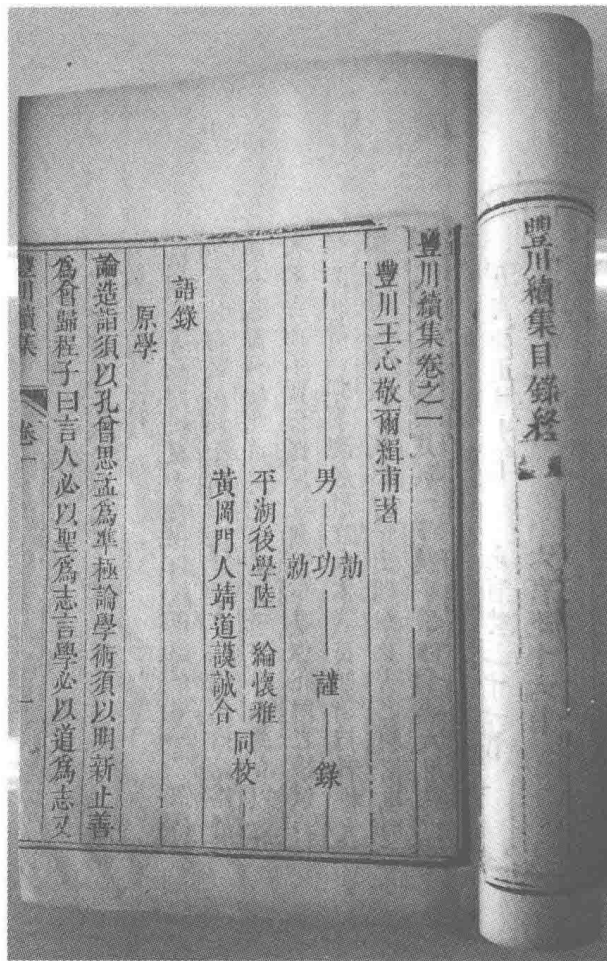 豐川續集目錄終
豐川續集卷之一
豐川王心敬爾緝甫著
男
功
勍
謹錄
平湖後學陸 綸懷雅
黃岡門人靖道謨誠合
同校
語錄
原學
論造詣須以孔曾思孟為準極論學術須以明新止善
為會歸程子曰言人必以聖為志言學必以道為志又
豐川續集
卷一
一